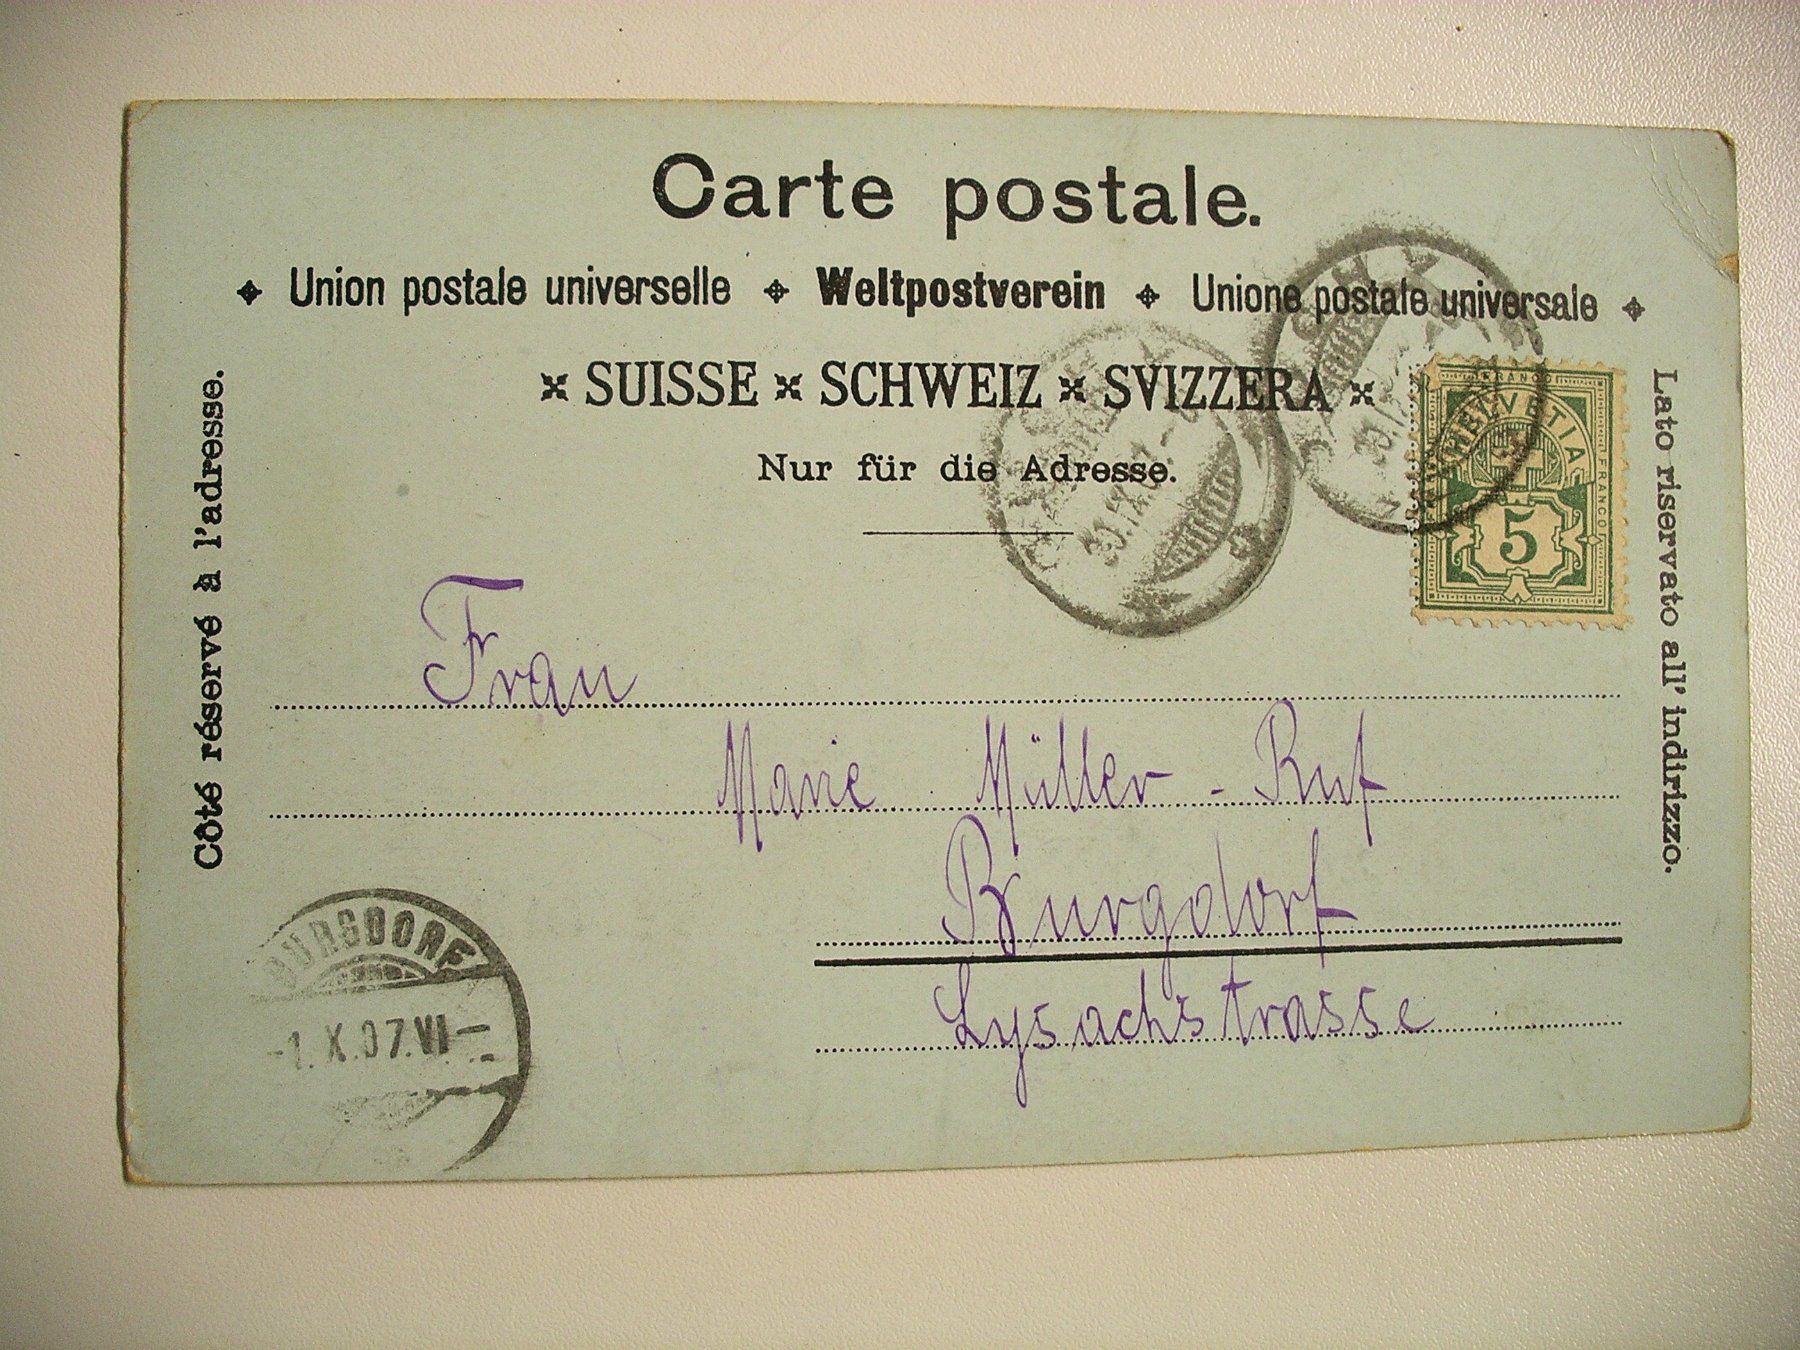 Carte postale.
Union postale universelle Weltpostverein Unione postale universale
SUISSE SCHWEIZ SVIZZERA
Nur für die Adresse.
Côté réservé à l'adresse.
Lato riservato all' indirizzo.
HELVETIA
FRANCO
FRANCO
5
Frau
Marie Müller - Ruf
Burgdorf
Lysachstrasse
BURGDORF
-1.X.07.VI-